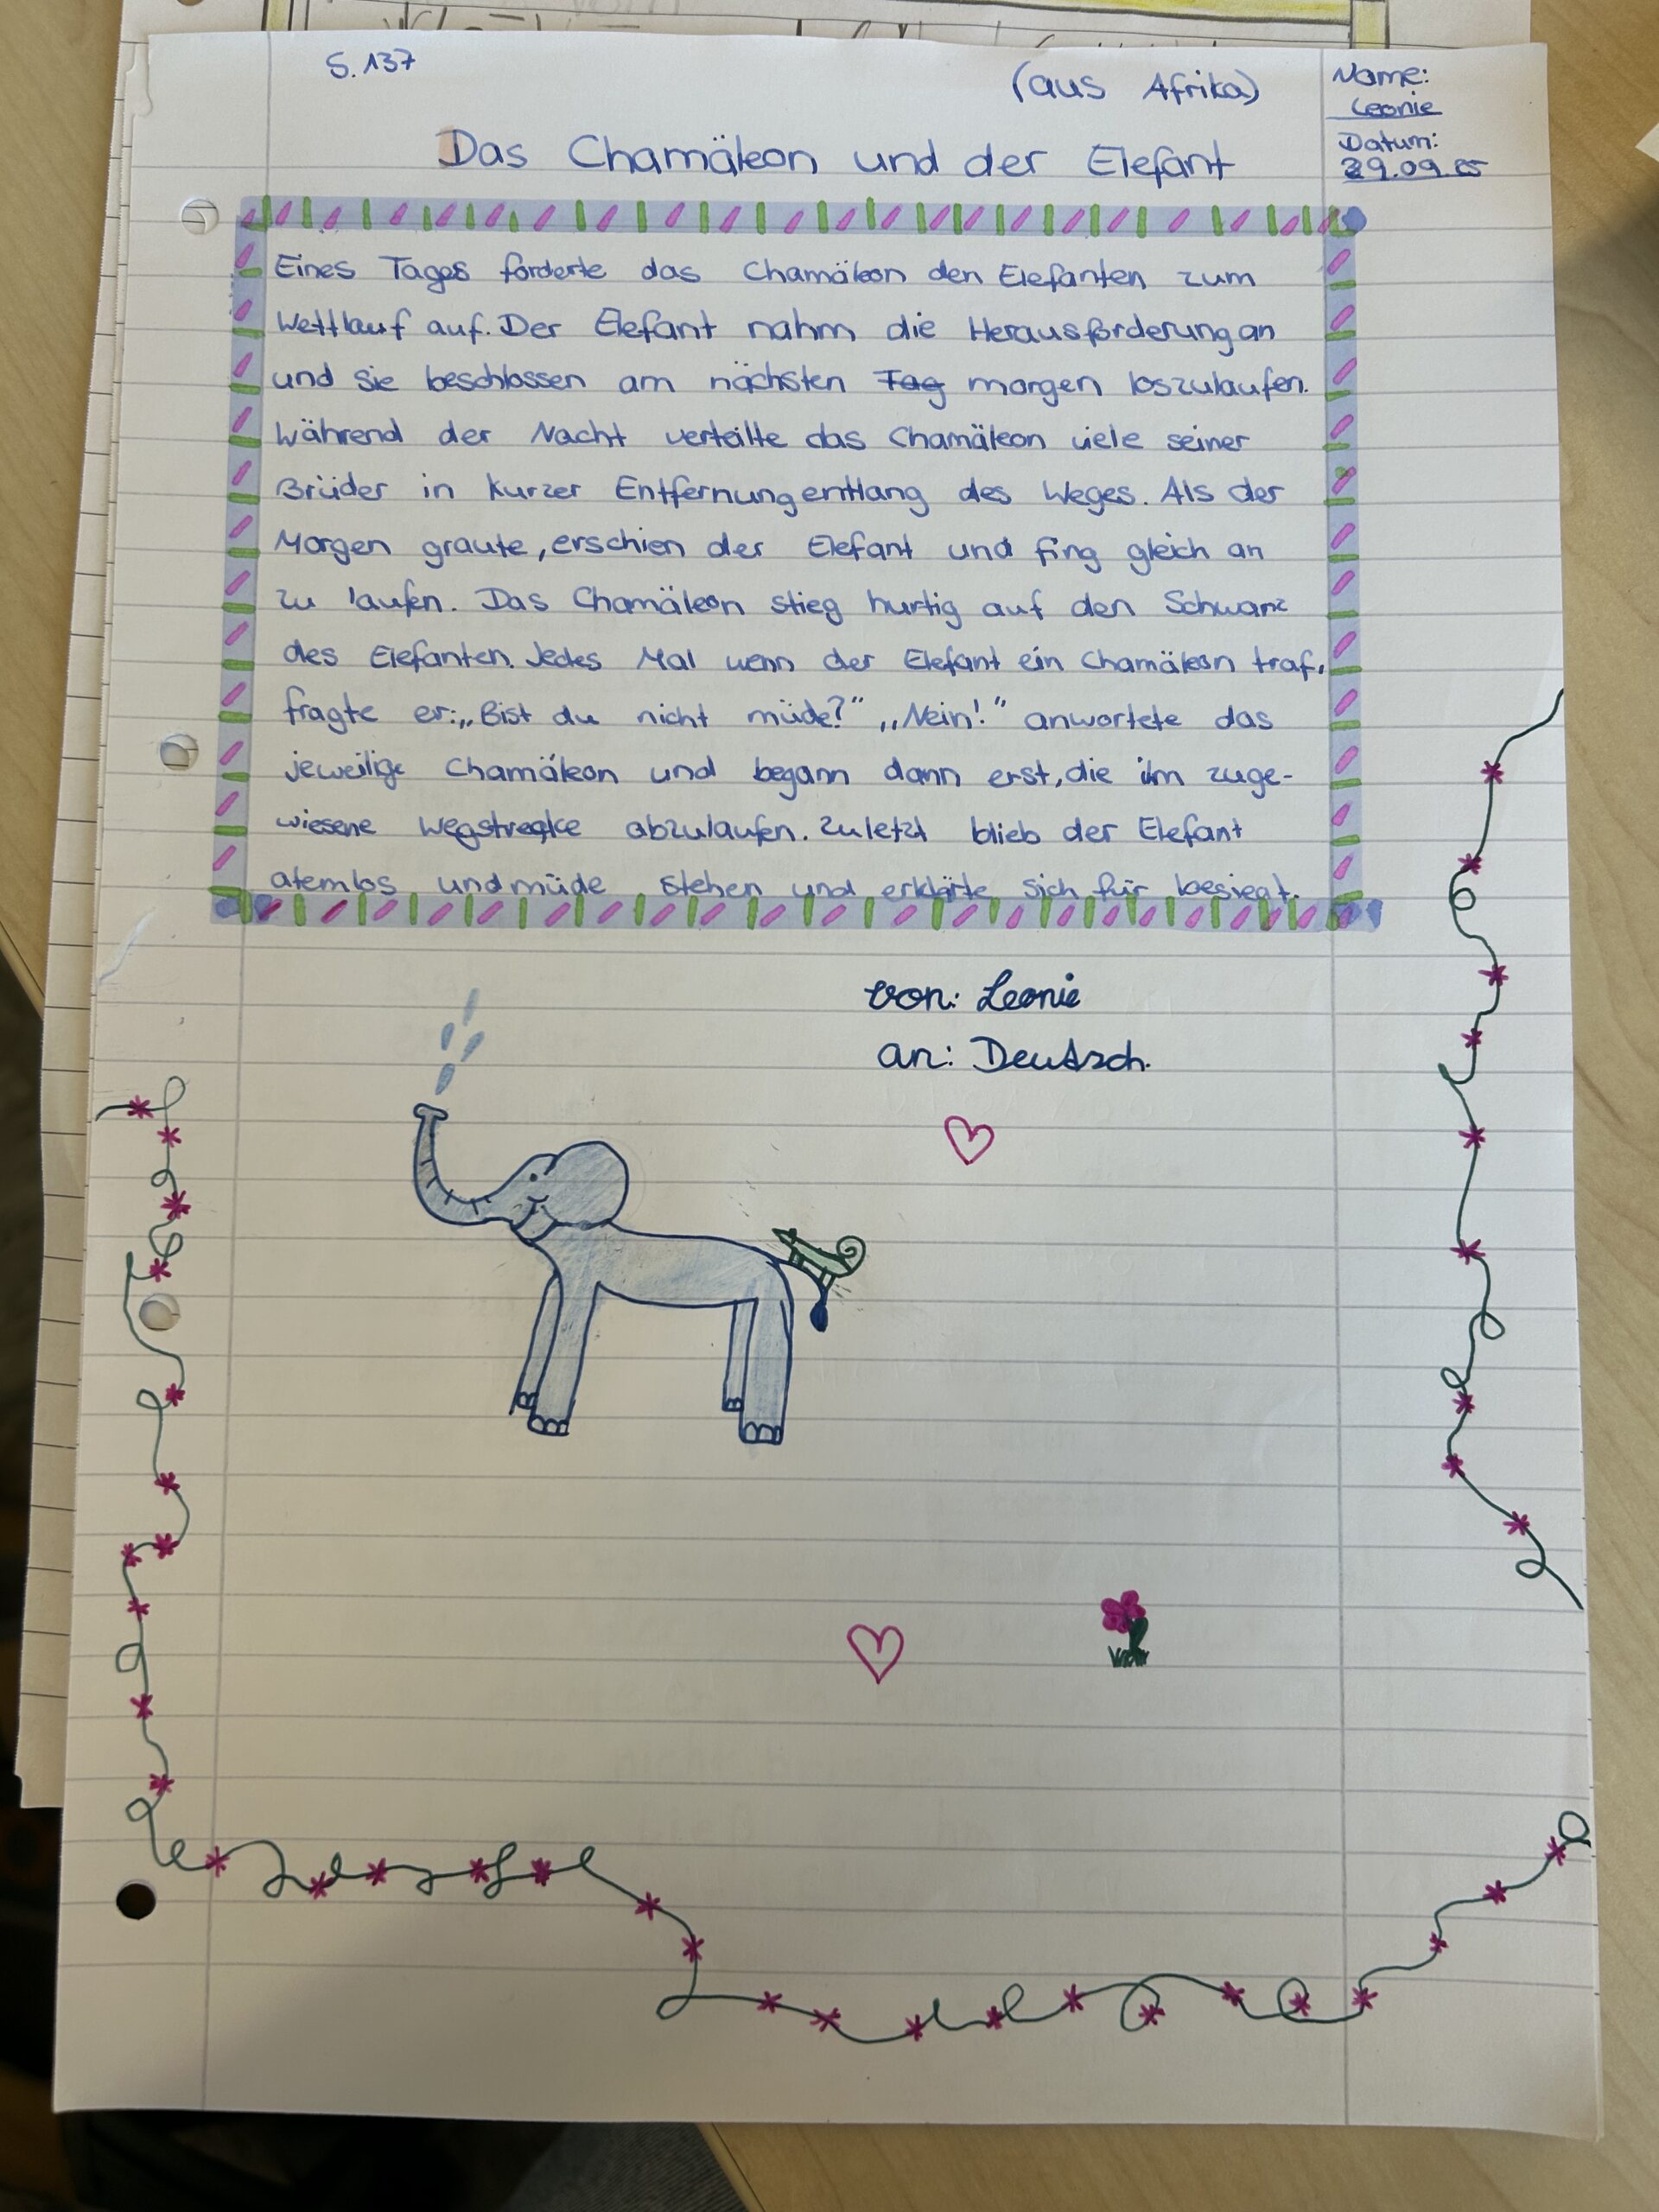 S. 137
(aus Afrika)
Name:
Leonie
Datum:
29.09.25
Das Chamäleon und der Elefant
Eines Tages forderte das Chamäleon den Elefanten zum
Wettlauf auf. Der Elefant nahm die Herausforderung an
und sie beschlossen am nächsten Tag morgen loszulaufen.
Während der Nacht verteilte das Chamäleon viele seiner
Brüder in kurzer Entfernung entlang des Weges. Als der
Morgen graute, erschien der Elefant und fing gleich an
zu laufen. Das Chamäleon stieg hurtig auf den Schwanz
des Elefanten. Jedes Mal wenn der Elefant ein Chamäleon traf,
fragte er: „Bist du nicht müde?" „Nein!" anwortete das
jeweilige Chamäleon und begann dann erst, die ihm zuge-
wiesene Wegstrecke abzulaufen. Zuletzt blieb der Elefant
atemlos und müde stehen und erklärte sich für besiegt.
von: Leonie
an: Deutsch.